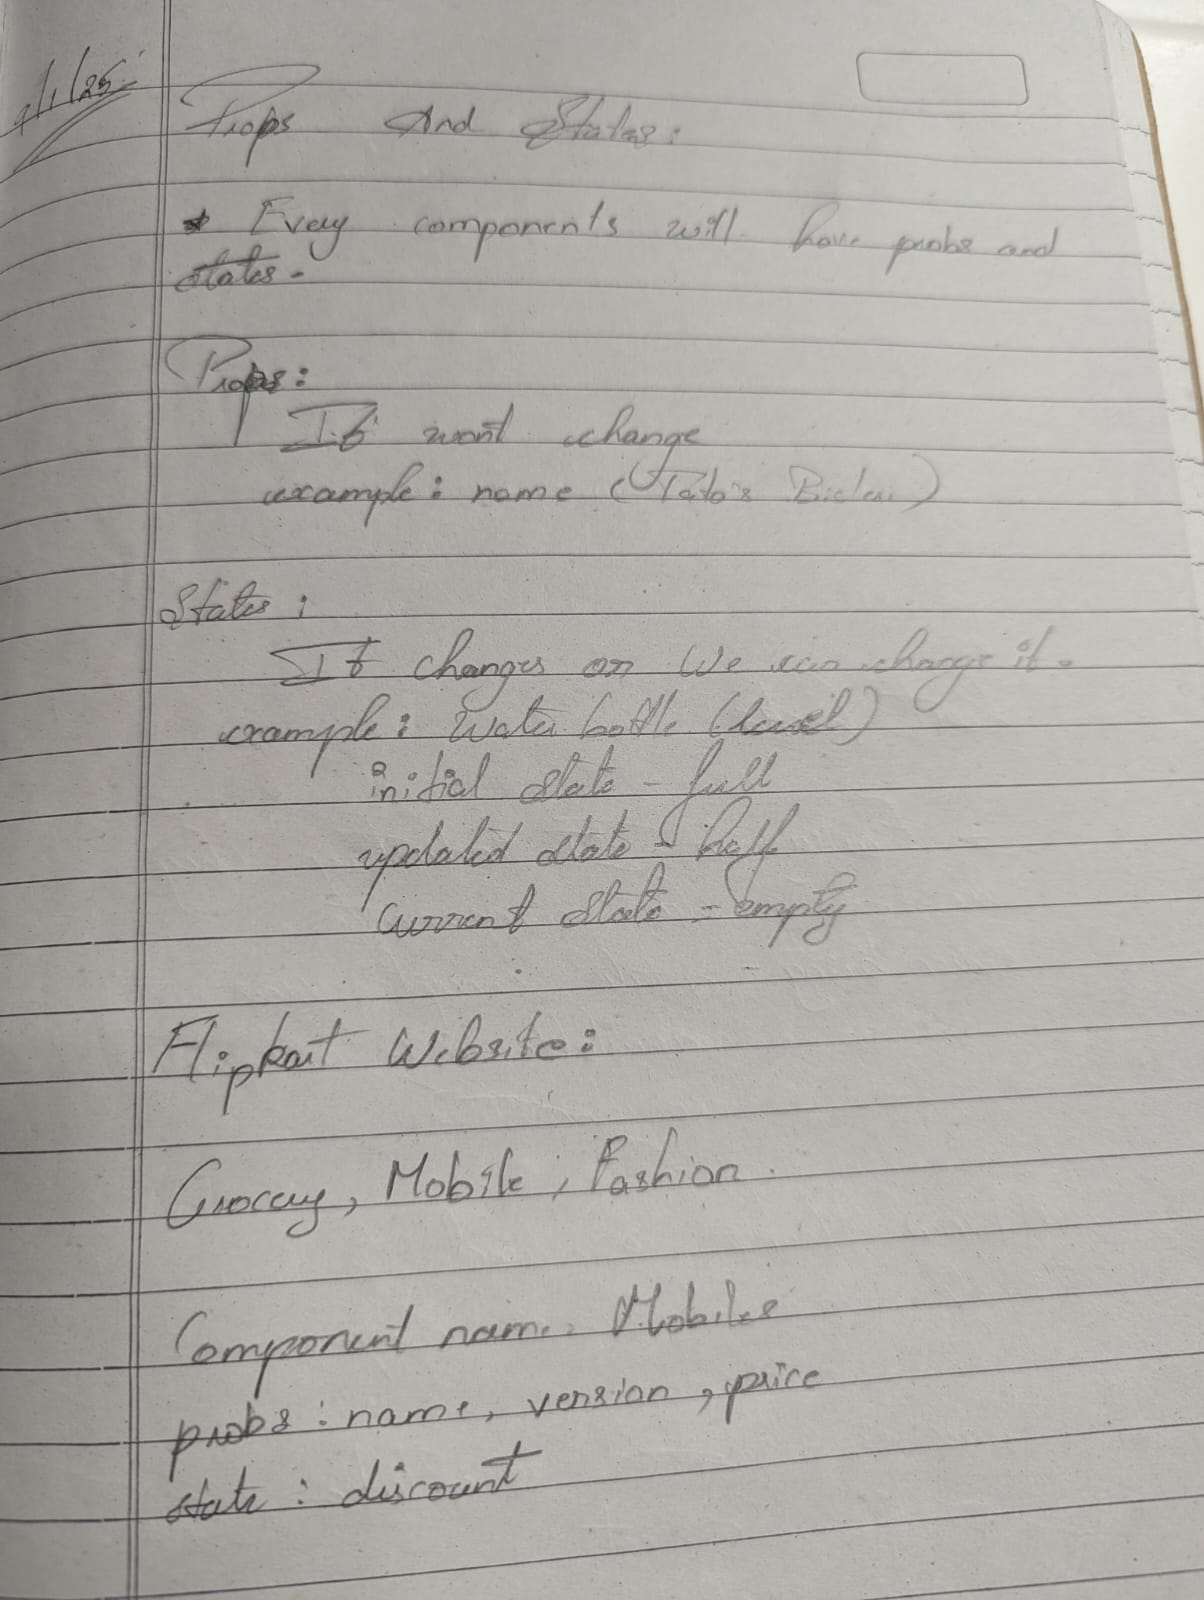 9/1/25
Props And States:
* Every components will have probs and
states.
Props:
It wont change
example: name (
States:
It changes or We can change it.
example: Water bottle (level)
initial state - full
updated state - half
current state - empty
Flipkart Website:
Grocery, Mobile, Fashion.
Component name: Mobiles
probs: name, version, price
state: discount